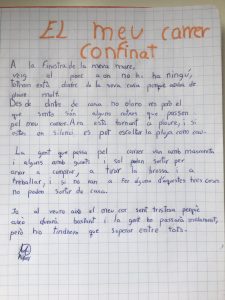 EL meu carrer
confinat
A la finestra de la meva mare,
veig el parc a on no hi ha ningú,
tothom està dintre de la seva casa perquè acaba de
ploure molt.
Des de dintre de casa no oloro res però el
que sento són alguns cotxes que passen
pel meu carrer. Ara està tornant a ploure, i si
estàs en silenci es pot escoltar la pluja com cau.
La gent que passa pel carrer van amb mascareta
i alguns amb guants i sol poden sortir per
anar a comprar, a tirar la brossa i a
treballar, i si no van a fer alguna d'aquestes tres coses
no poden sortir de casa.
Jo al veure això el meu cor sent tristesa perquè
això durarà bastant i la gent ho passarà malament,
però ho tindrem que superar entre tots.